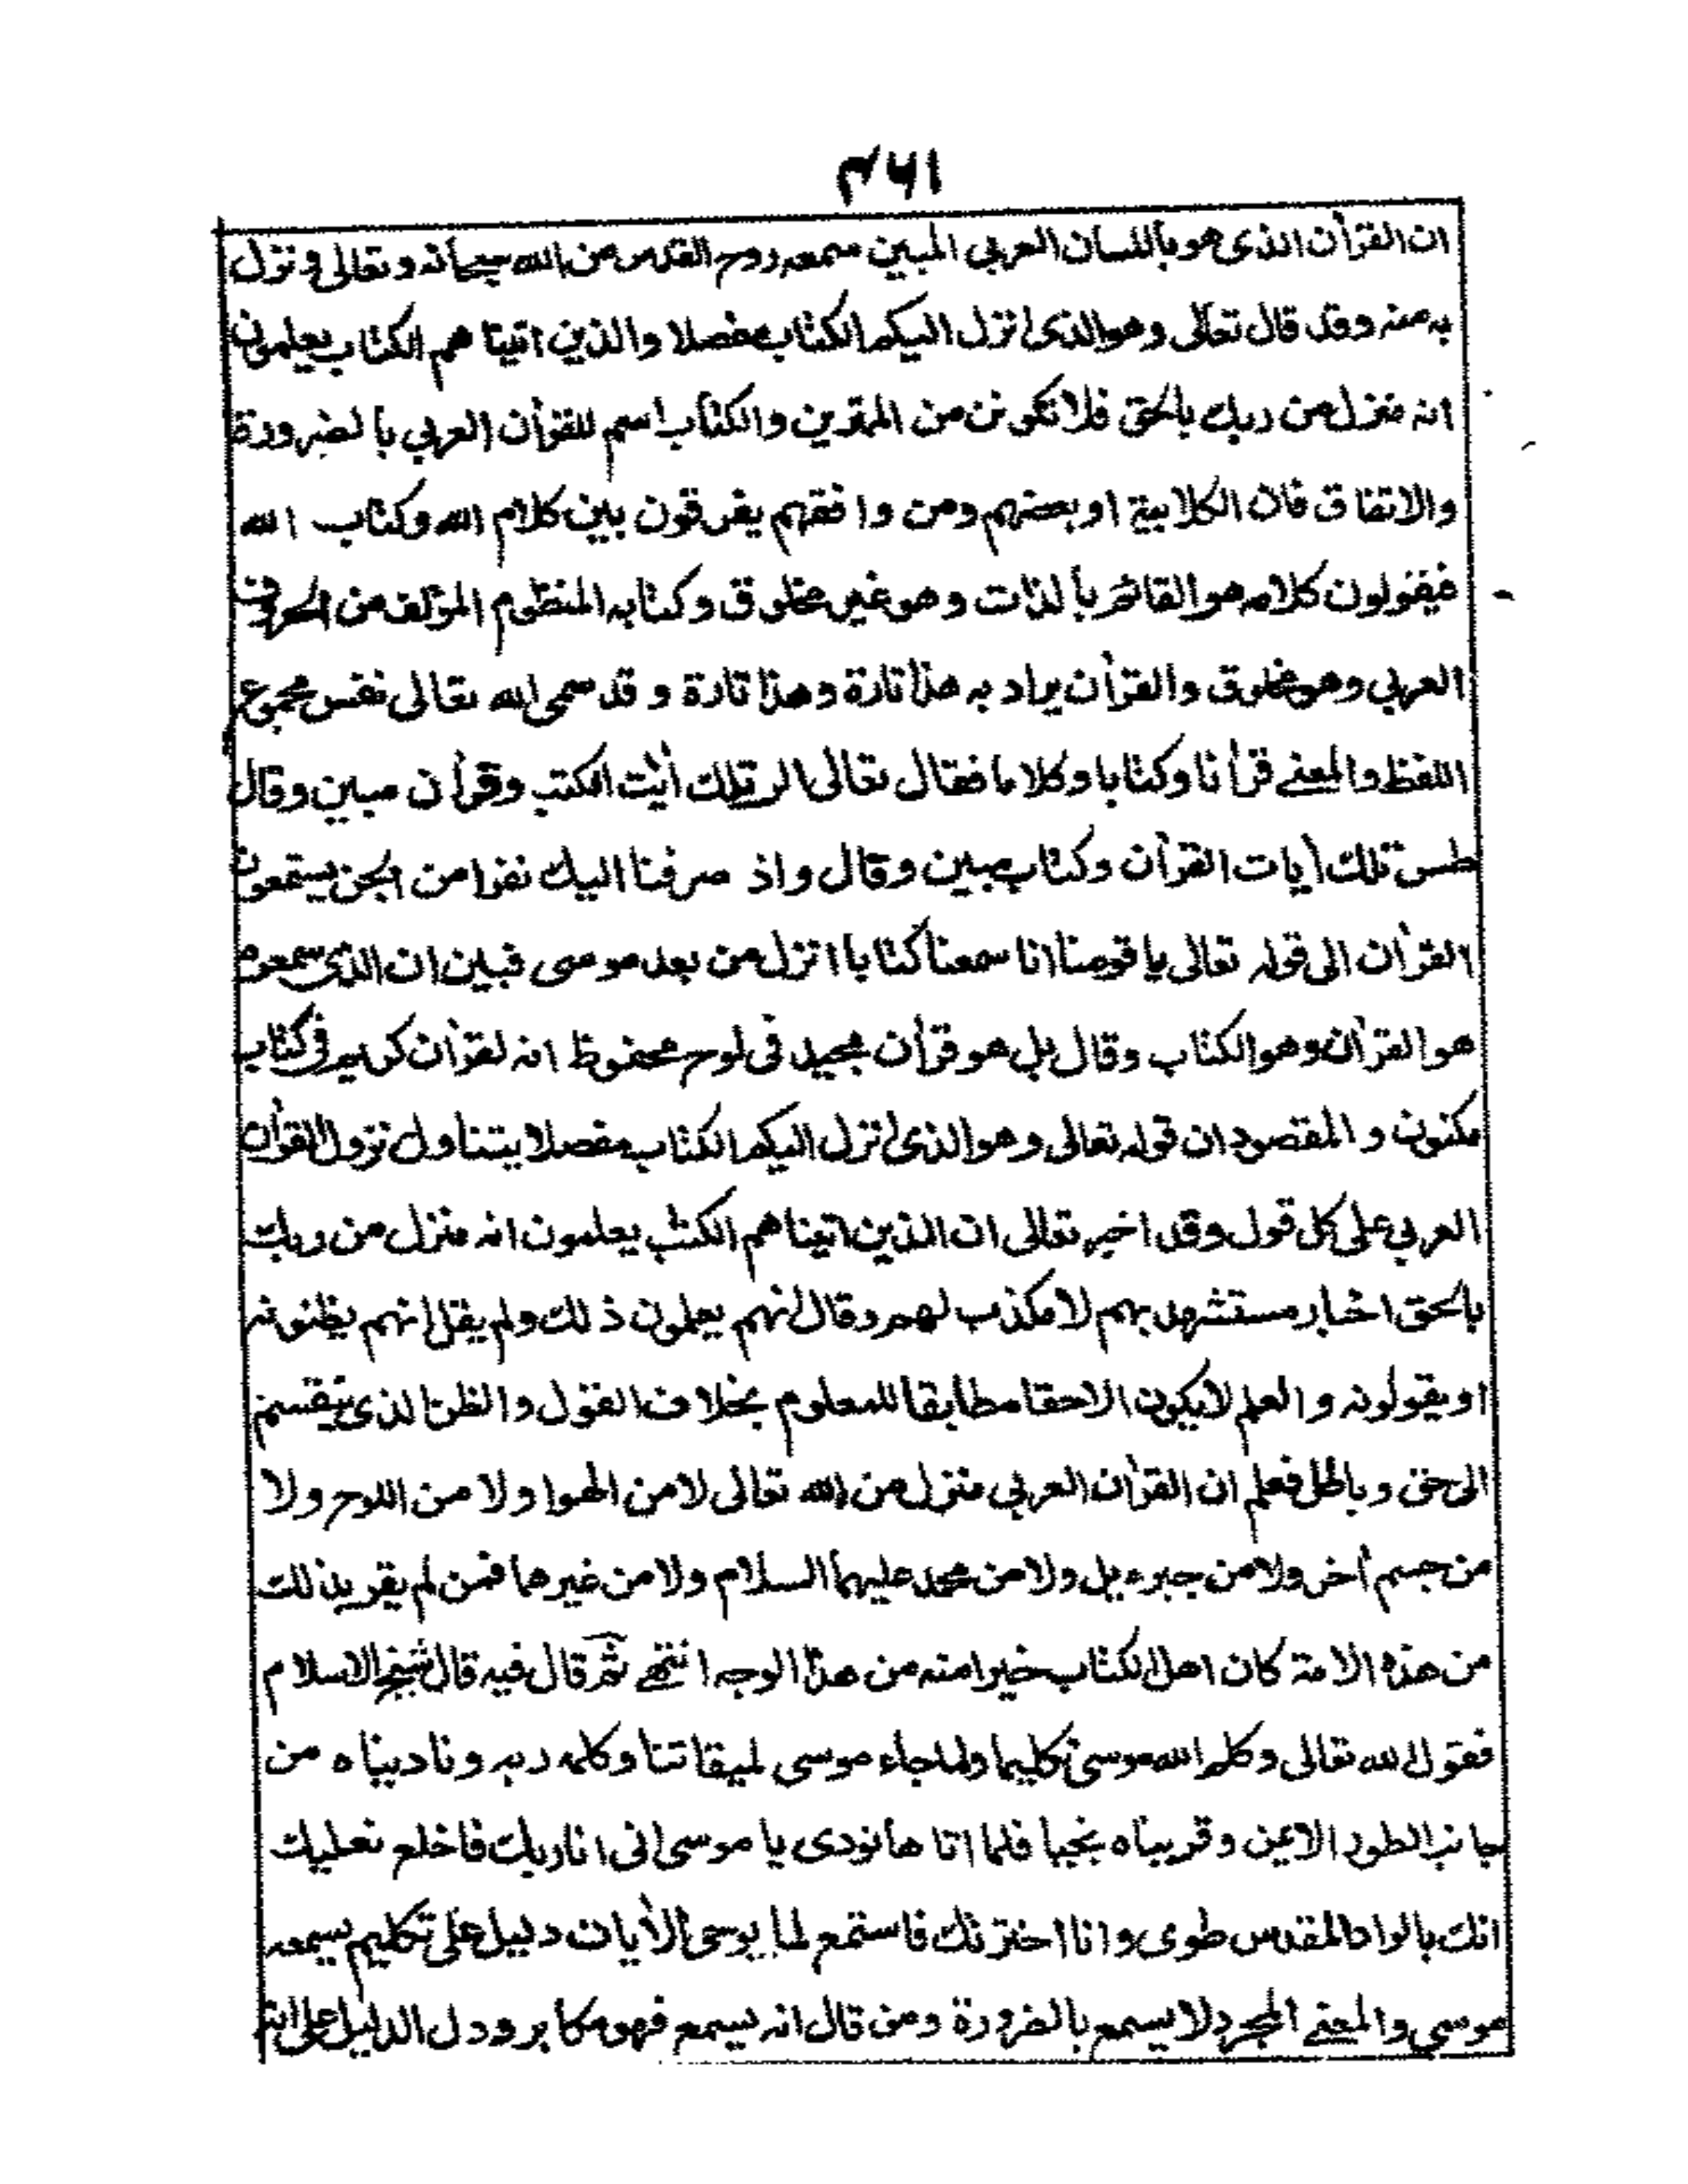 ٤٦١
ان القرأن الذى هو باللسان العربي المبين سمعه روح القدس من الله سبحانه وتعالى ونزل
به منه وقد قال تعالى وهو الذى انزل اليكم الكتاب مفصلا والذين اتينا هم الكتاب يعلمون
انه منزل من ربك بالحق فلا تكونن من الممترين والكتاب اسم للقرأن العربي بالضرورة
والاتفاق فان الكلابية او بعضهم ومن وافقهم يفرقون بين كلام الله وكتاب الله
فيقولون كلامه هو القائم بالذات وهو غير مخلوق وكتابه المنظوم المؤلف من الحروف
العربي وهو مخلوق والقرأن يراد به هذا تارة وهذا تارة وقد سمى الله تعالى نفس مجموع
اللفظ والمعنے قرأنا وكتابا وكلاما فقال تعالى الر تلك أيٰت الكتب وقرأن مبين وقال
طس تلك أيات القرأن وكتاب مبين وقال واذ صرفنا اليك نفرا من الجن يستمعون
القرأن الى قوله تعالى يا قومنا انا سمعنا كتابا انزل من بعد موسى فبين ان الذى سمعوه
هو القرأن وهو الكتاب وقال بل هو قرأن مجيد فى لوح محفوظ انه لقرأن كريم فى كتاب
مكنون و المقصود ان قوله تعالى وهو الذى انزل اليكم الكتاب مفصلا يتناول نزول القرأن
العربي على كل قول وقد اخبر تعالى ان الذين اتينا هم الكتٰب يعلمون انه منزل من ربك
بالحق اخبار مستشهد بهم لا مكذب لهم وقال انهم يعلمون ذلك ولم يقل انهم يظنونه
او يقولونه و العلم لا يكون الا حقا مطابقا للمعلوم بخلاف القول والظن الذى ينقسم
الى حق و باطل فعلم ان القرأن العربي منزل من الله تعالى لا من الهوا ولا من اللوح ولا
من جسم أخر ولا من جبرءيل ولا من محمد عليهما السلام ولا من غيرهما فمن لم يقر بذلك
من هذه الامة كان اهل الكتاب خيرا منه من هذا الوجه انتهے ثم قال فيه قال شيخ الاسلام
فقول الله تعالى وكلم الله موسى تكليما ولما جاء موسى لميقاتنا وكلمه ربه وناديناه من
جانب الطور الايمن وقربناه نجيا فلما اتا ها نودى يا موسى انى انا ربك فاخلع نعليك
انك بالواد المقدس طوى وانا اخترتك فاستمع لما يوحى الأيات دليل على تكليم يسمعه
موسى والمعنے المجرد لا يسمع بالضرورة ومن قال انه يسمع فهو مكابر ودل الدليل على انه